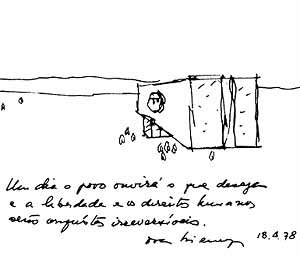 Um dia o povo ouvirá o que deseja
e a liberdade e os direitos humanos
serão conquistas irreversíveis.
18.4.78